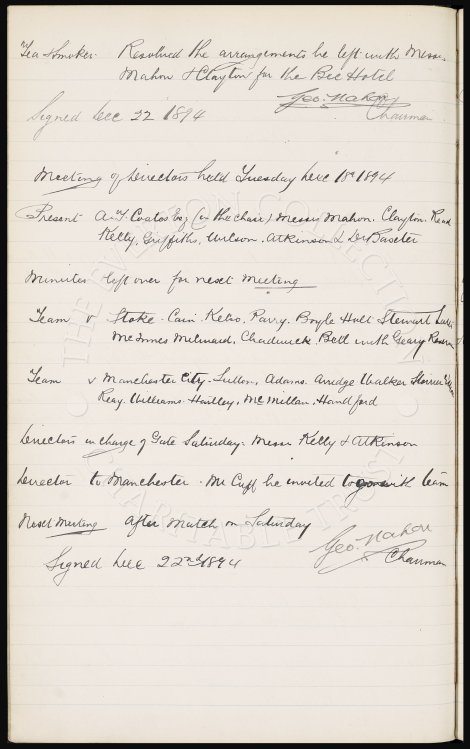 Tea & Smoker. Resolved the arrangements be left with Messrs
Mahon & Clayton for the Bee Hotel
Geo. Mahon
Signed Dec 22 1894
Chairman
Meeting of Directors held Tuesday Dec 18th 1894
Present A.T. Coates Esq (in the chair) Messrs Mahon. Clayton. Read
Kelly, Griffiths, Wilson, Atkinson & Dr Baxter
Minutes left over for next Meeting
Team v Stoke. Cain. Kelso. Parry. Boyle Holt Stewart
McInnes Milward, Chadwick Bell with Geary Reserve
Team v Manchester City. Sutton, Adams. Arridge Walker Storrier
Reay. Williams. Hartley, McMillan, Handford
Directors in charge of Gate Saturday. Messrs Kelly & Atkinson
Director to Manchester. Mr Cuff be invited to go with team
Next Meeting after match on Saturday
Geo. Mahon
Signed Dec 22nd 1894
Chairman
THE COLLECTION
CHARITABLE TRUST